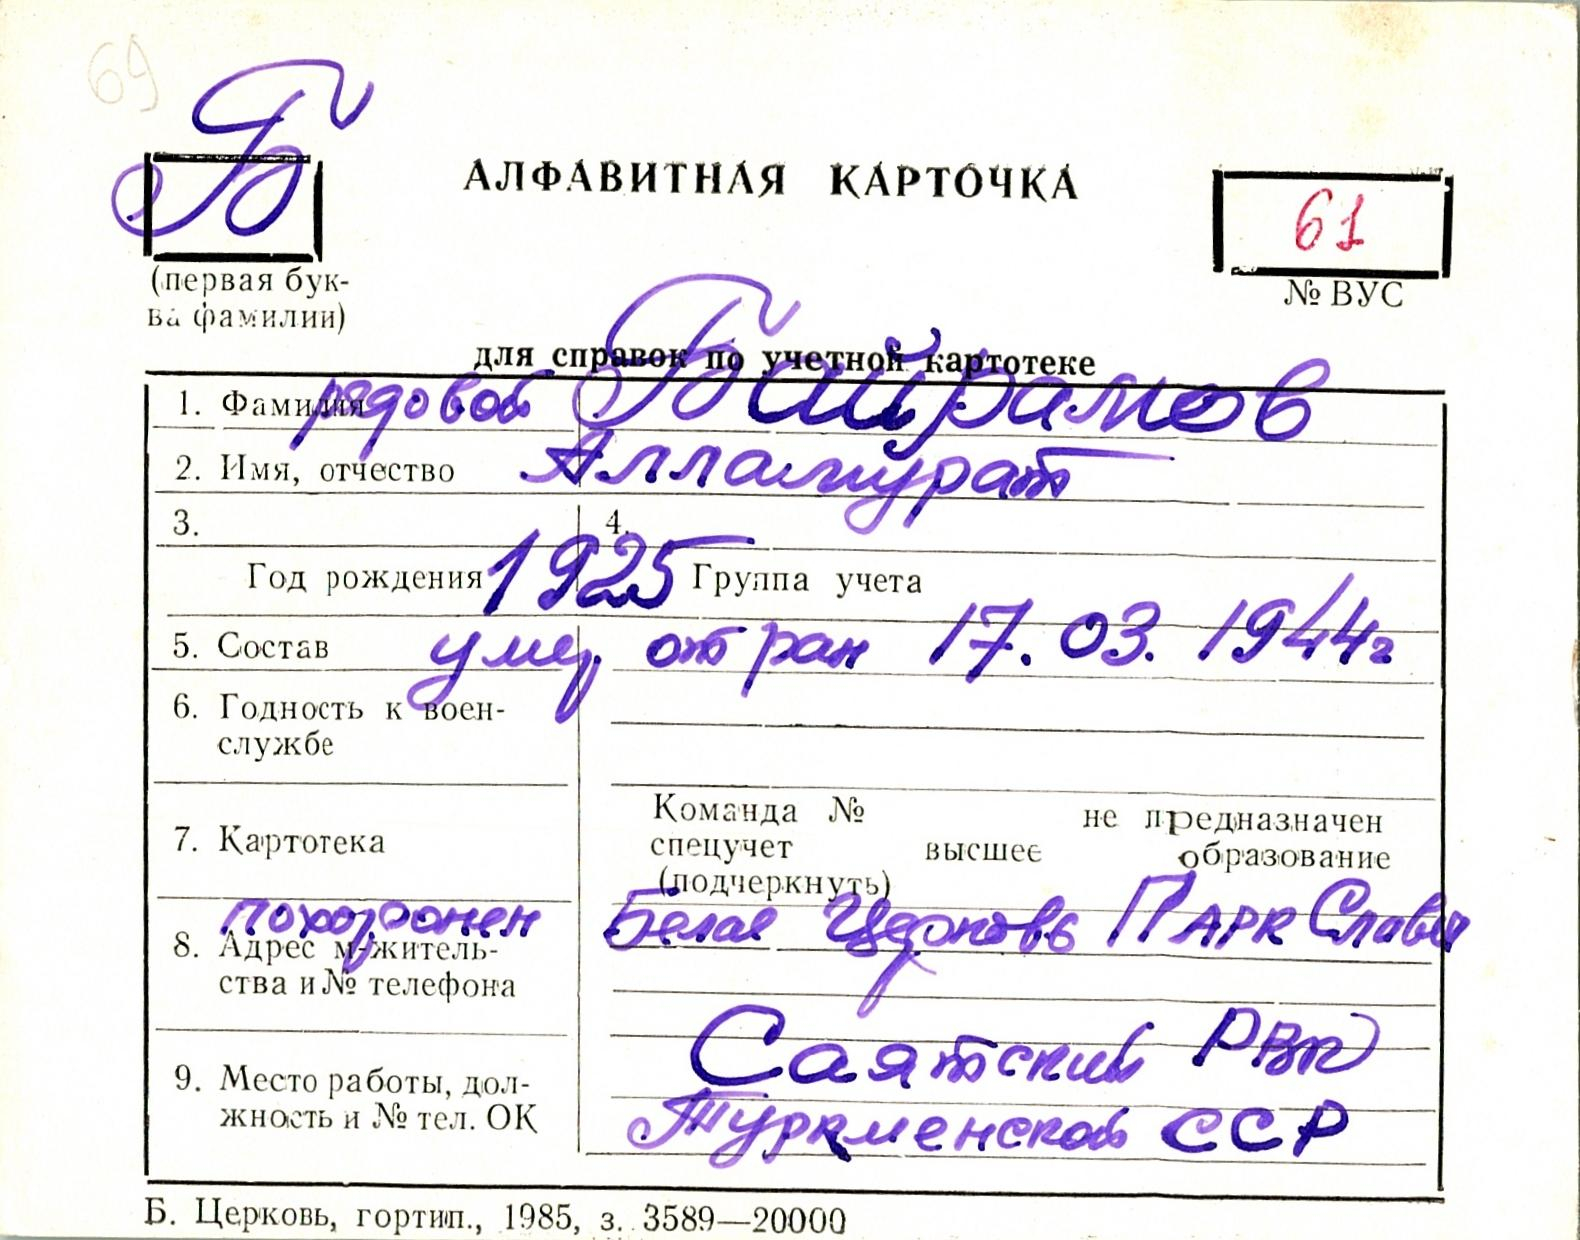 69
Б
АЛФАВИТНАЯ КАРТОЧКА
61
(первая бук-
ва фамилии)
№ ВУС
для справок по учетной картотеке
1. Фамилия рядовой Байрамов
2. Имя, отчество Алламурат
3. 4.
Год рождения 1925 Группа учета
5. Состав умер от ран 17.03.1944г
6. Годность к воен-
службе
Команда № не предназначен
7. Картотека
спецучет высшее образование
(подчеркнуть)
похоронен Белая Церковь ПАРК Славы
8. Адрес м-житель-
ства и № телефона
Саятский РВК
9. Место работы, дол-
жность и № тел. ОК
Туркменской ССР
Б. Церковь, гортип., 1985, з. 3589—20000